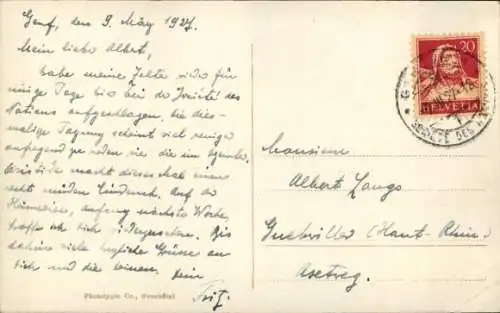 Genf, den 9. März 1927.
Mein lieber Albert,
habe meine Zelte wieder für
einige Tage hier bei der Société des
Nations aufgeschlagen. Die dies-
malige Tagung scheint viel weniger
aufregend zu werden wie die im September.
macht dieses Mal einen
recht müden Eindruck. Auf der
Heimreise, anfang nächste Woche,
hoffe ich Dich wiederzusehen. Bis
dahin viele herzliche Grüsse an
Dich und die Deinen. Dein
Fritz.
Phototypie Co., Neuchâtel
20
HELVETIA
Monsieur
Albert Lange
Guebviller (Haut-Rhin)